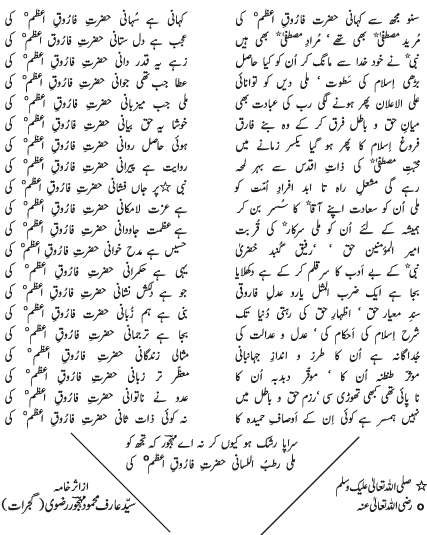 سنو مجھ سے کہانی حضرت فاروقِ اعظمؓ کی کہانی ہے سُہانی حضرتِ فارُوقِ اعظمؓ کی
مُریدِ مصطفیٰؐ بھی تھے ‘ مُرادِ مصطفیٰؐ بھی ہیں عجب ہے دل ستانی حضرت فارُوق اعظمؓ کی
نبیؐ نے خود خدا سے مانگ کر اُن کو کیا حاصل زہے یہ قدر دانی حضرتِ فارُوقِ اعظمؓ کی
بڑھی اِسلام کی سَطوت ‘ ملی دیں کو توانائی عطا جب تھی جوانی حضرتِ فارُوقِ اعظمؓ کی
علی الاعلان پھر ہونے لگی رب کی عبادت بھی ملی جب میزبانی حضرتِ فارُوقِ اعظمؓ کی
میانِ حق و باطل فرق کر کے وہ بنے فارق خوشا یہ حق بیانی حضرتِ فارُوقِ اعظمؓ کی
فروغ اِسلام کا پھر ہو گیا یکسر زمانے میں ہوئی حاصل روانی حضرتِ فارُوقِ اعظمؓ کی
محبّتِ مصطفیٰؐ کی ذاتِ اقدس سے بہر لمحہ روایت ہے پیرانی حضرتِ فارُوقِ اعظمؓ کی
رہے گی مشعلِ راہ تا ابد افرادِ اُمّت کو نبی ☆ پر جاں فشانی حضرتِ فارُوقِ اعظمؓ کی
ملی اُن کو سعادت اپنے آقاؐ کا سُسر بن کر ہے عزت لامکانی حضرتِ فارُوقِ اعظمؓ کی
ہمیشہ کے لئے اُن کو ملی سرکارؐ کی قُربت ہے عظمت جاودانی حضرتِ فارُوقِ اعظمؓ کی
امیر المؤمنین حق ‘ ‘ رفیقِ گنبد خضریٰ حسیں ہے مدح خوانی حضرتِ فارُوقِ اعظمؓ کی
نبیؐ کے بے اَدب کا سر قلم کر کے ہے دکھلایا یہی ہے حکمرانی حضرتِ فارُوقِ اعظمؓ کی
بجا ہے ایک ضرب المثل یارو عدلِ فاروقی جو ہے دِلکش نشانی حضرتِ فارُوقِ اعظمؓ کی
سندِ معیارِ حق ‘ اظہارِ حق کی رہتی دُنیا تک بنی ہے ہم زُبانی حضرتِ فارُوقِ اعظمؓ کی
شرحِ اِسلام کی احکام کی ‘ عدل و عدالت کی بجا ہے ترجمانی حضرتِ فارُوقِ اعظمؓ کی
جُداگانہ ہے اُن کا طرز و اندازِ جہانبانی مثالی زندگانی حضرتِ فارُوقِ اعظمؓ کی
مؤثر طنطنہ اُن کا ‘ موقر دبدبہ اُن کا معطّر تر زبانی حضرتِ فارُوقِ اعظمؓ کی
نا پائی تھی کبھی تھوڑی سی رزمِ حق و باطل میں عدو نے ناتوانی حضرتِ فارُوقِ اعظمؓ کی
نہیں ہمسر ہے کوئی اِن کے اَوصافِ حمیدہ کا نہ کوئی ذات ثانی حضرتِ فارُوقِ اعظمؓ کی
سراپا رشک ہو کیوں کر نہ اے مہجورؔ کہ تجھ کو
ملی رطبُ اللسانی حضرتِ فارُوقِ اعظمؓ کی
☆ صلی اللہ تعالیٰ علیک وسلم
o رضی اللہ تعالیٰ عنہ
از اثر خامہ
سیّد عارف محمود مہجورؔ رضوی (گجرات)